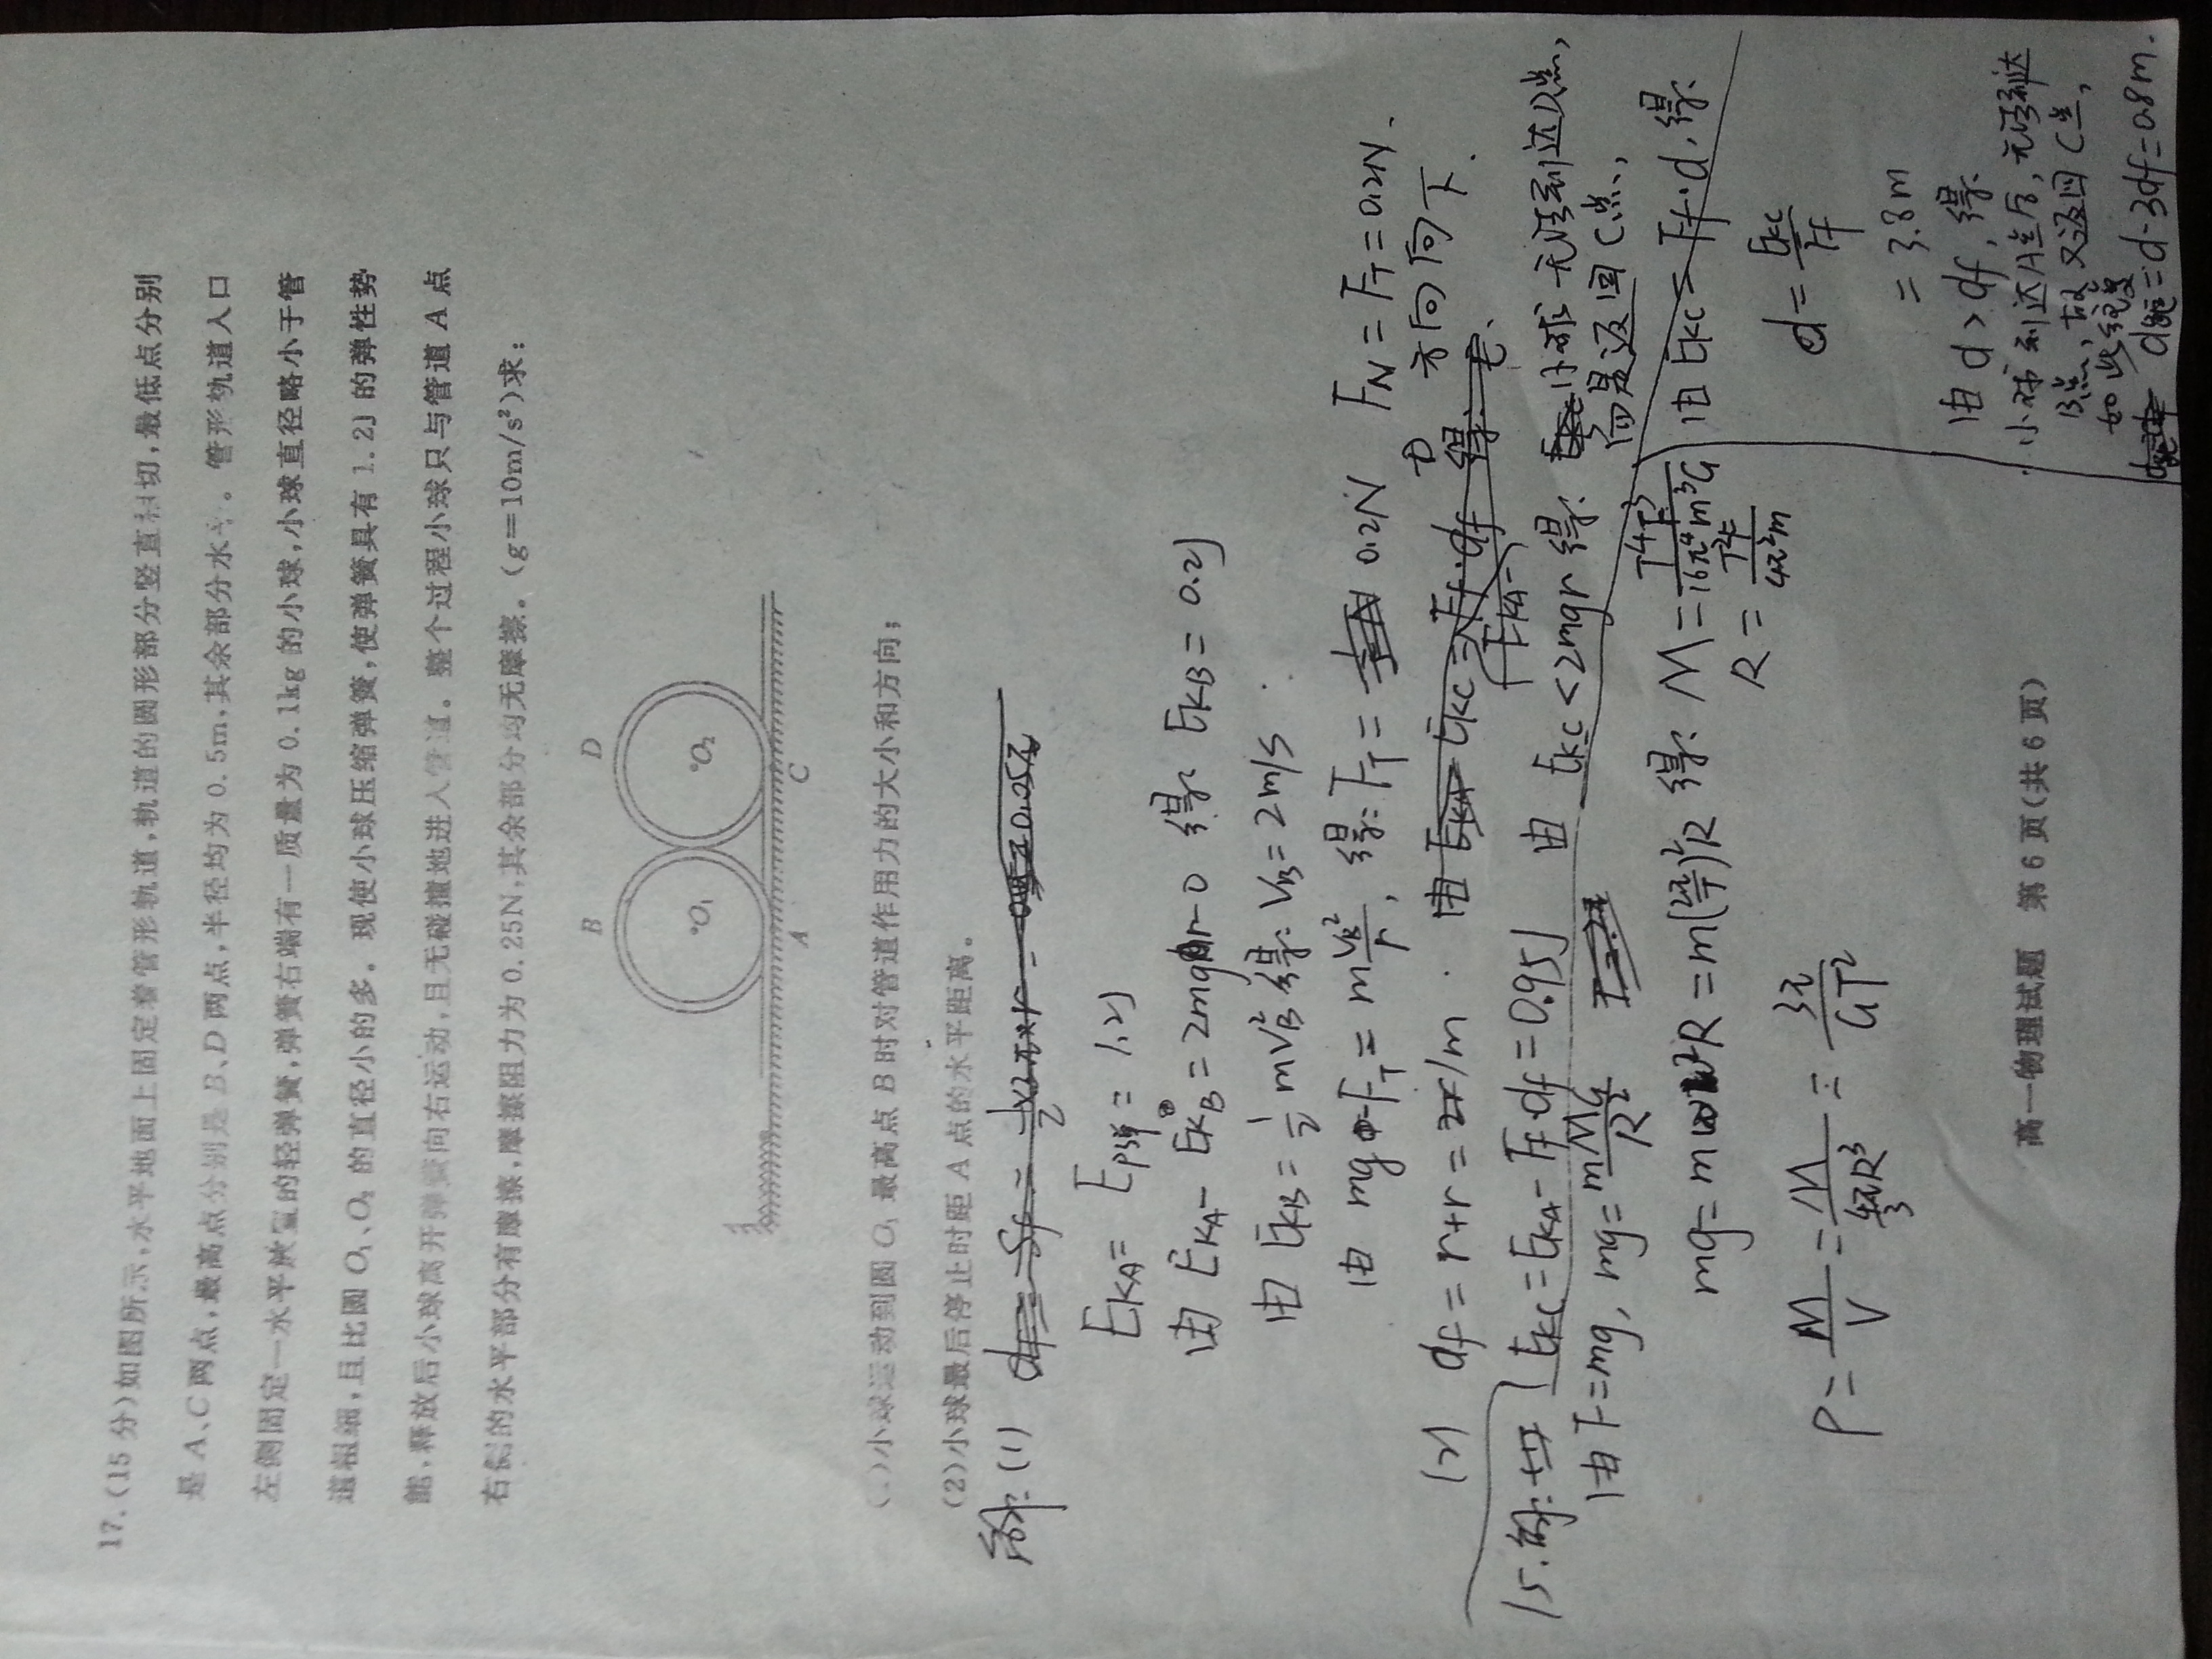 17.(15分)如图所示,水平地面上固定着管形轨道,轨道的圆形部分竖直相切,最低点分别
是A、C两点,最高点分别是B、D两点,半径均为0.5m,其余部分水平。管形轨道入口
左侧固定一水平放置的轻弹簧,弹簧右端有一质量为0.1kg的小球,小球直径略小于管
道粗细,且比圆O₁、O₂的直径小的多。现使小球压缩弹簧,使弹簧具有1.2J的弹性势
能,释放后小球离开弹簧向右运动,且无碰撞地进入管道。整个过程小球只与管道A点
右侧的水平部分有摩擦,摩擦阻力为0.25N,其余部分均无摩擦。(g=10m/s²)求:
B D
O₁ O₂
A C
)小球运动到圆O₁最高点B时对管道作用力的大小和方向;
(2)小球最后停止时距A点的水平距离。
解:(1)
E_KA = E_P弹 = 1.2J
由 E_KA - E_KB = 2mgr-0 得: E_KB = 0.2J
由 E_KB = 1/2 mV_B² 得: V_B = 2m/s
由 mg - F_T = m V_B²/r, 得: F_T = 0.2N F_N = F_T = 0.2N.
方向向下.
(2) df = r+r = 1m.
E_KC = E_KA - Ff·df = 0.95J 由 E_KC < 2mgr 得: 小球无法到达D点,
而是返回C点,
由 E_KC = Ff·d, 得:
d = E_KC/Ff
= 3.8m
由 d > df, 得:
小球到达A点后,无法到达
B点,故又返回C点,
如此往复
d距 = d-3df = 0.8m.
15.解:
由 F=mg, mg = mMG/R²
mg = mω²R = m(2π/T)²R 得: M = T⁴F³/16π⁴m³G
R = T²F/4π²m
ρ = M/V = M/(4/3 πR³) = 3π/GT²
高一物理试题 第6页(共6页)